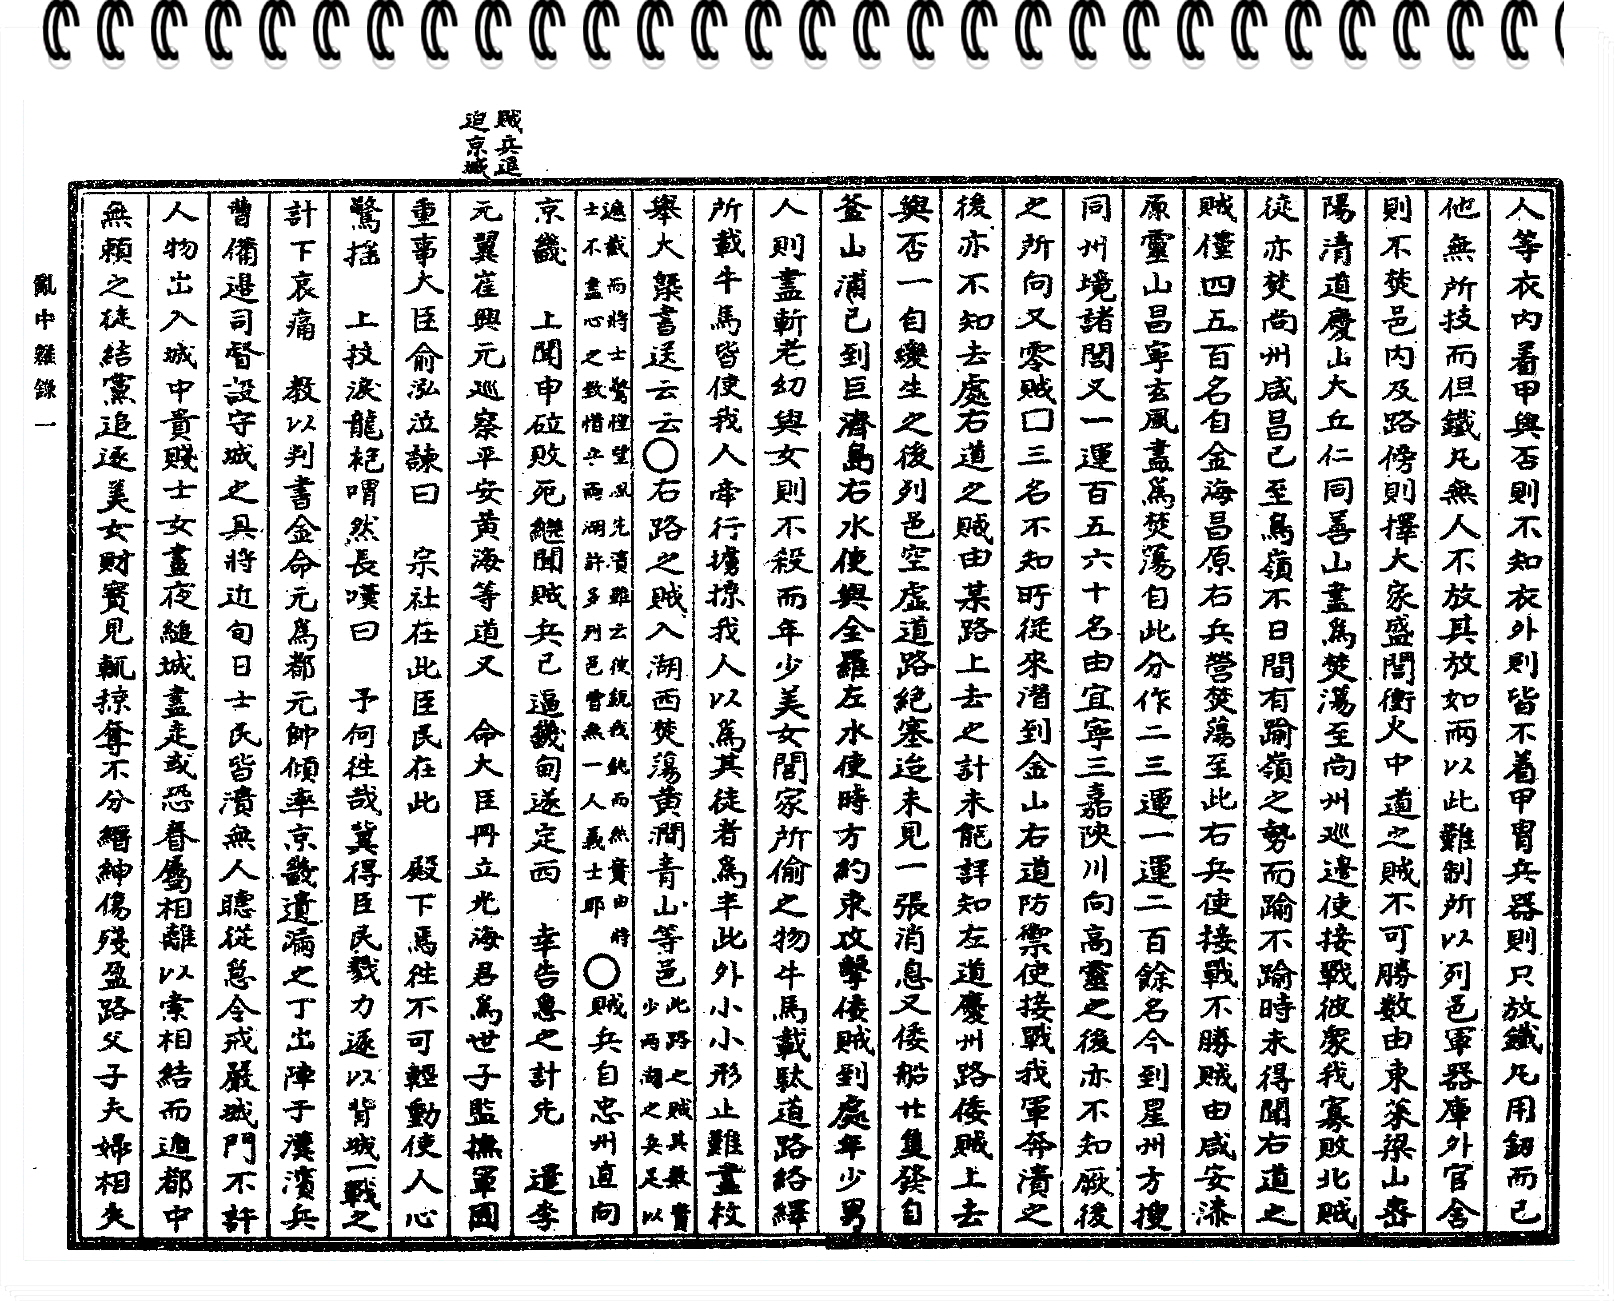 賊兵進
迫京城
人等衣內着甲與否則不知衣外則皆不着甲冑兵器則只放鐵凡用釰而已
他無所技而但鐵凡無人不放其放如雨以此難制所以列邑軍器庫外官舍
則不焚邑內及路傍則擇大家盛閭衝火中道之賊不可勝數由東萊梁山密
陽淸道慶山大丘仁同善山盡爲焚蕩至尙州巡邊使接戰彼衆我寡敗北賊
徒亦焚尙州咸昌已至鳥嶺不日間有踰嶺之勢而踰不踰時未得聞右道之
賊僅四五百名自金海昌原右兵營焚蕩至此右兵使接戰不勝賊由咸安漆
原靈山昌寧玄風盡爲焚蕩自此分作二三運一運二百餘名今到星州方搜
同州境諸閭又一運百五六十名由宜寧三嘉陜川向高靈之後亦不知厥後
之所向又零賊囗三名不知所從來潛到金山右道防禦使接戰我軍奔潰之
後亦不知去處右道之賊由某路上去之計未能詳知左道慶州路倭賊上去
與否一自變生之後列邑空虛道路絕塞迨未見一張消息又倭船廿隻發自
釜山浦已到巨濟島右水使與全羅左水使時方約束攻擊倭賊到處年少男
人則盡斬老幼與女則不殺而年少美女閭家所偷之物牛馬載駄道路絡繹
所載牛馬皆使我人牽行擄掠我人以爲其徒者爲半此外小小形止難盡枚
擧大槩書送云云○右路之賊入湖西焚蕩黃澗靑山等邑此路之賊其數實少兩湖之兵足以
遮截而將士驚惶望風先潰雖云彼銳我鈍而然實由將士不盡心之致惜乎兩湖許多列邑曾無一人義士耶○賊兵自忠州直向
京畿　上聞申砬敗死繼聞賊兵已逼畿甸遂定西　幸告急之計先　遣李
元翼崔興元巡察平安黃海等道又　命大臣冊立光海君爲世子監撫軍國
重事大臣俞泓泣諫曰　宗社在此臣民在此　殿下焉往不可輕動使人心
驚搖　上抆淚龍袍喟然長嘆曰　予何往哉冀得臣民戮力逐以背城一戰之
計下哀痛　敎以判書金命元爲都元帥傾率京畿遺漏之丁出陣于漢濱兵
曹備邊司督設守城之具將近旬日士民皆潰無人聽從急令戒嚴城門不許
人物出入城中貴賤士女晝夜縋城盡走或恐眷屬相離以索相結而遁都中
無賴之徒結黨追逐美女財寳見輒掠奪不分縉紳傷殘盈路父子夫婦相失
亂中雜錄一